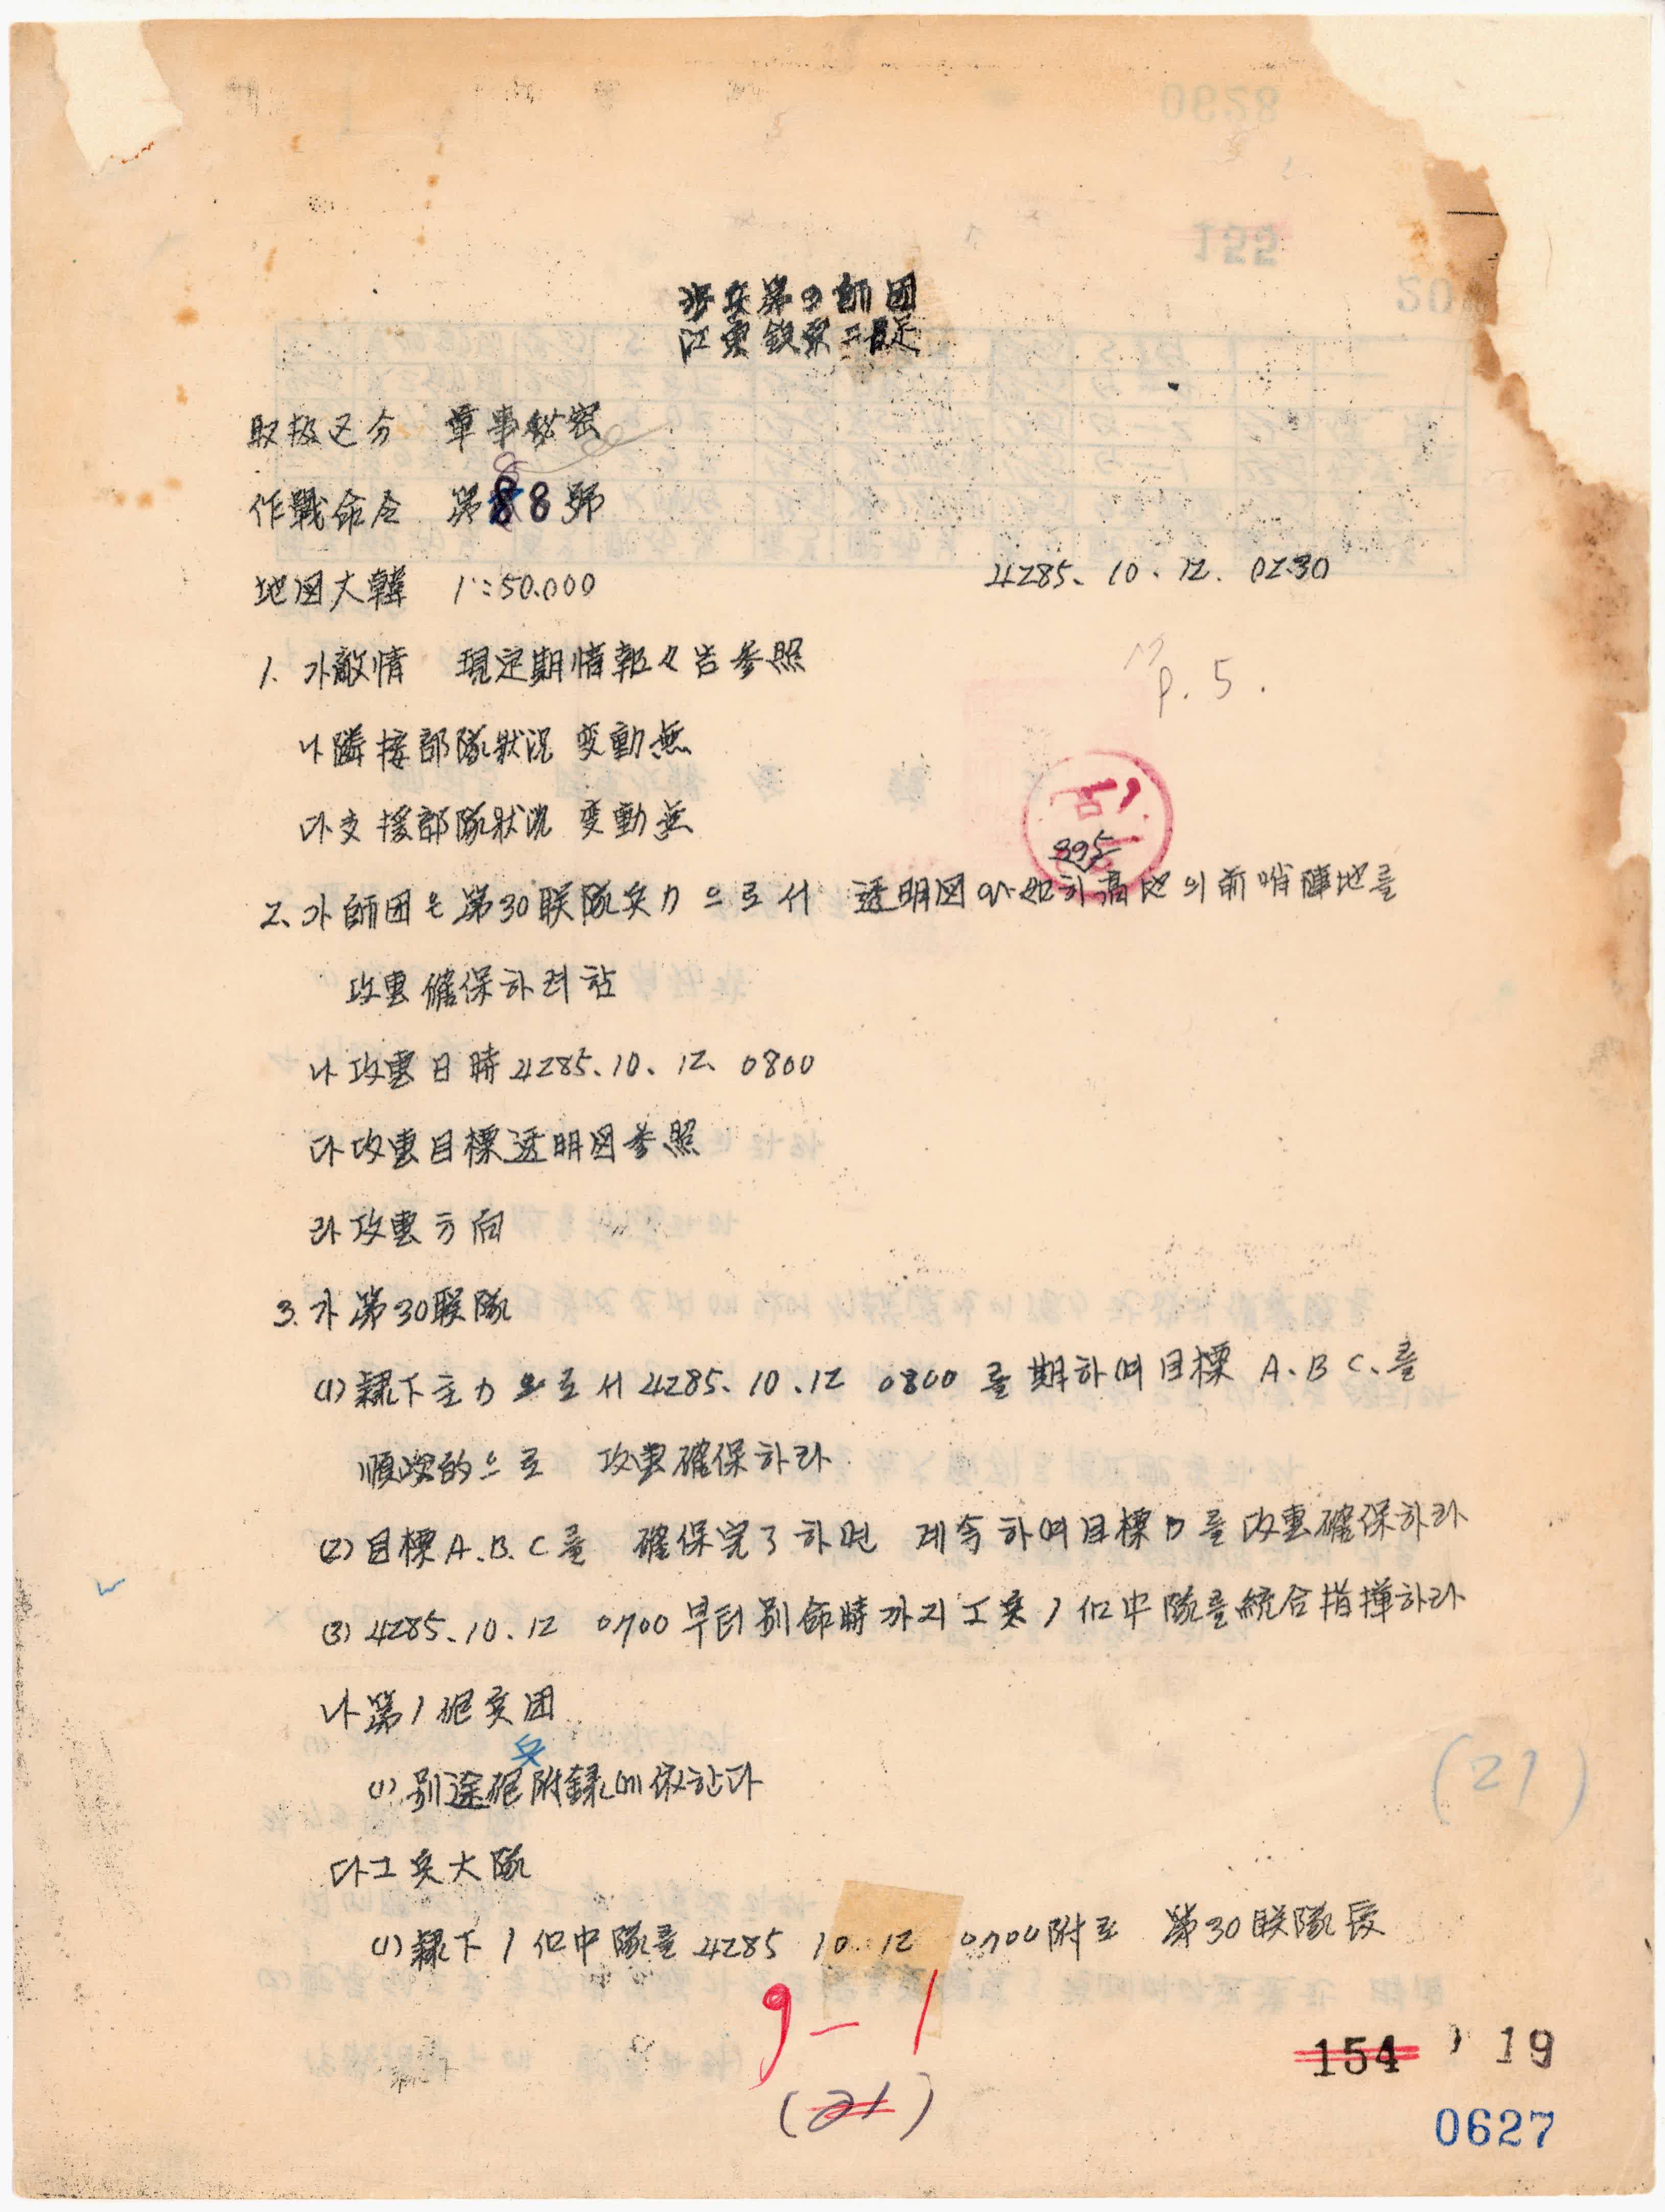 步兵第9師団
江東 鉄原 二號
取扱区分 軍事秘密
作戰命令 第88號
地図大韓 1:50.000
4285、10、12. 0230
1. 가 敵情 現定期情報々告参照
P. 5.
나 隣接部隊狀況 変動無
다 支援部隊狀況 変動無
395
2. 가 師団은 第30联隊兵力으로서 透明図와 如히 高地의 前哨陣地를
攻擊確保하려 함
나 攻擊日時 4285、10、12、0800
다 攻擊目標透明図参照
라 攻擊方向
3. 가 第30联隊
(1) 隷下主力으로서 4285、10、12 0800를 期하여 目標 A、B C、를
順次的으로 攻擊確保하라
(2) 目標 A.B.C를 確保完了하면 계속하여 目標 D를 攻擊確保하라
(3) 4285、10、12 0700부터 別命時까지 工兵 1個中隊를 統合指揮하라
나 第1砲兵団
(1) 別途砲兵附錄에 依한다
다 工兵大隊
(1) 隷下 1個中隊를 4285 10 12 0700附로 第30联隊長
(21)
9-1
(21)
154 19
0627